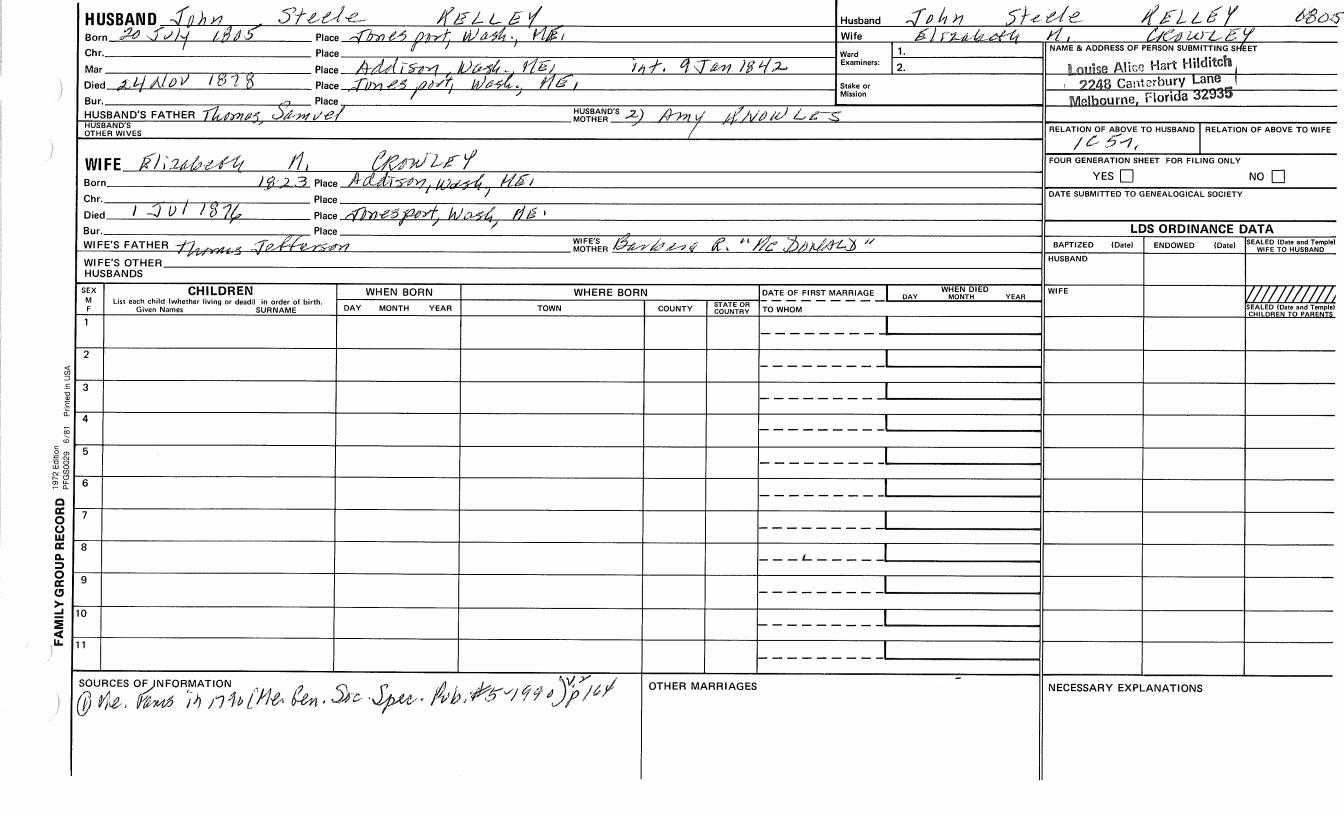 HUSBAND John Steele KELLEY
Born 20 July 1805 Place Jonesport, Wash., ME.
Chr. Place
Mar Place Addison, Wash, ME, int. 9 Jan 1842
Died 24 Nov 1878 Place Jonesport, Wash, ME,
Bur. Place
HUSBAND'S FATHER Thomas, Samuel HUSBAND'S MOTHER 2) Amy KNOWLES
HUSBAND'S OTHER WIVES
WIFE Elizabeth M. CROWLEY
Born 1823 Place Addison, Wash, ME.
Chr. Place
Died 1 Jul 1876 Place Jonesport, Wash, ME.
Bur. Place
WIFE'S FATHER Thomas Jefferson WIFE'S MOTHER Barbara R. "McDONALD"
WIFE'S OTHER HUSBANDS
Husband John Steele KELLEY 0805
Wife Elizabeth M. CROWLEY
Ward Examiners: 1.
2.
Stake or Mission
NAME & ADDRESS OF PERSON SUBMITTING SHEET
Louise Alice Hart Hilditch
2248 Canterbury Lane
Melbourne, Florida 32935
RELATION OF ABOVE TO HUSBAND RELATION OF ABOVE TO WIFE
1C5r.
FOUR GENERATION SHEET FOR FILING ONLY
YES NO
DATE SUBMITTED TO GENEALOGICAL SOCIETY
LDS ORDINANCE DATA
BAPTIZED (Date) ENDOWED (Date) SEALED (Date and Temple) WIFE TO HUSBAND
HUSBAND
WIFE
SEALED (Date and Temple) CHILDREN TO PARENTS
SEX M F
CHILDREN
List each child (whether living or dead) in order of birth.
Given Names SURNAME
WHEN BORN
DAY MONTH YEAR
WHERE BORN
TOWN COUNTY STATE OR COUNTRY
DATE OF FIRST MARRIAGE
TO WHOM
WHEN DIED
DAY MONTH YEAR
1
2
3
4
5
6
7
8
9
10
11
FAMILY GROUP RECORD 1972 Edition PFGS0029 6/81 Printed in USA
SOURCES OF INFORMATION
① Me. Fams in 1790 (Me. Gen. Soc. Spec. Pub. #5-1990) v.2 p164
OTHER MARRIAGES
NECESSARY EXPLANATIONS